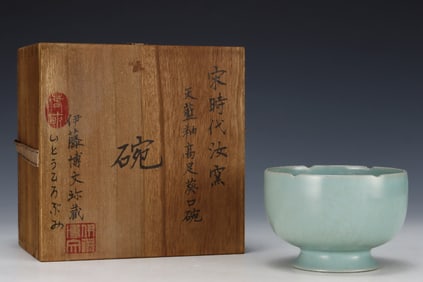 宋時代汝窯
天藍釉高足葵口碗
碗
伊藤博文珍藏
いとうひろぶみ